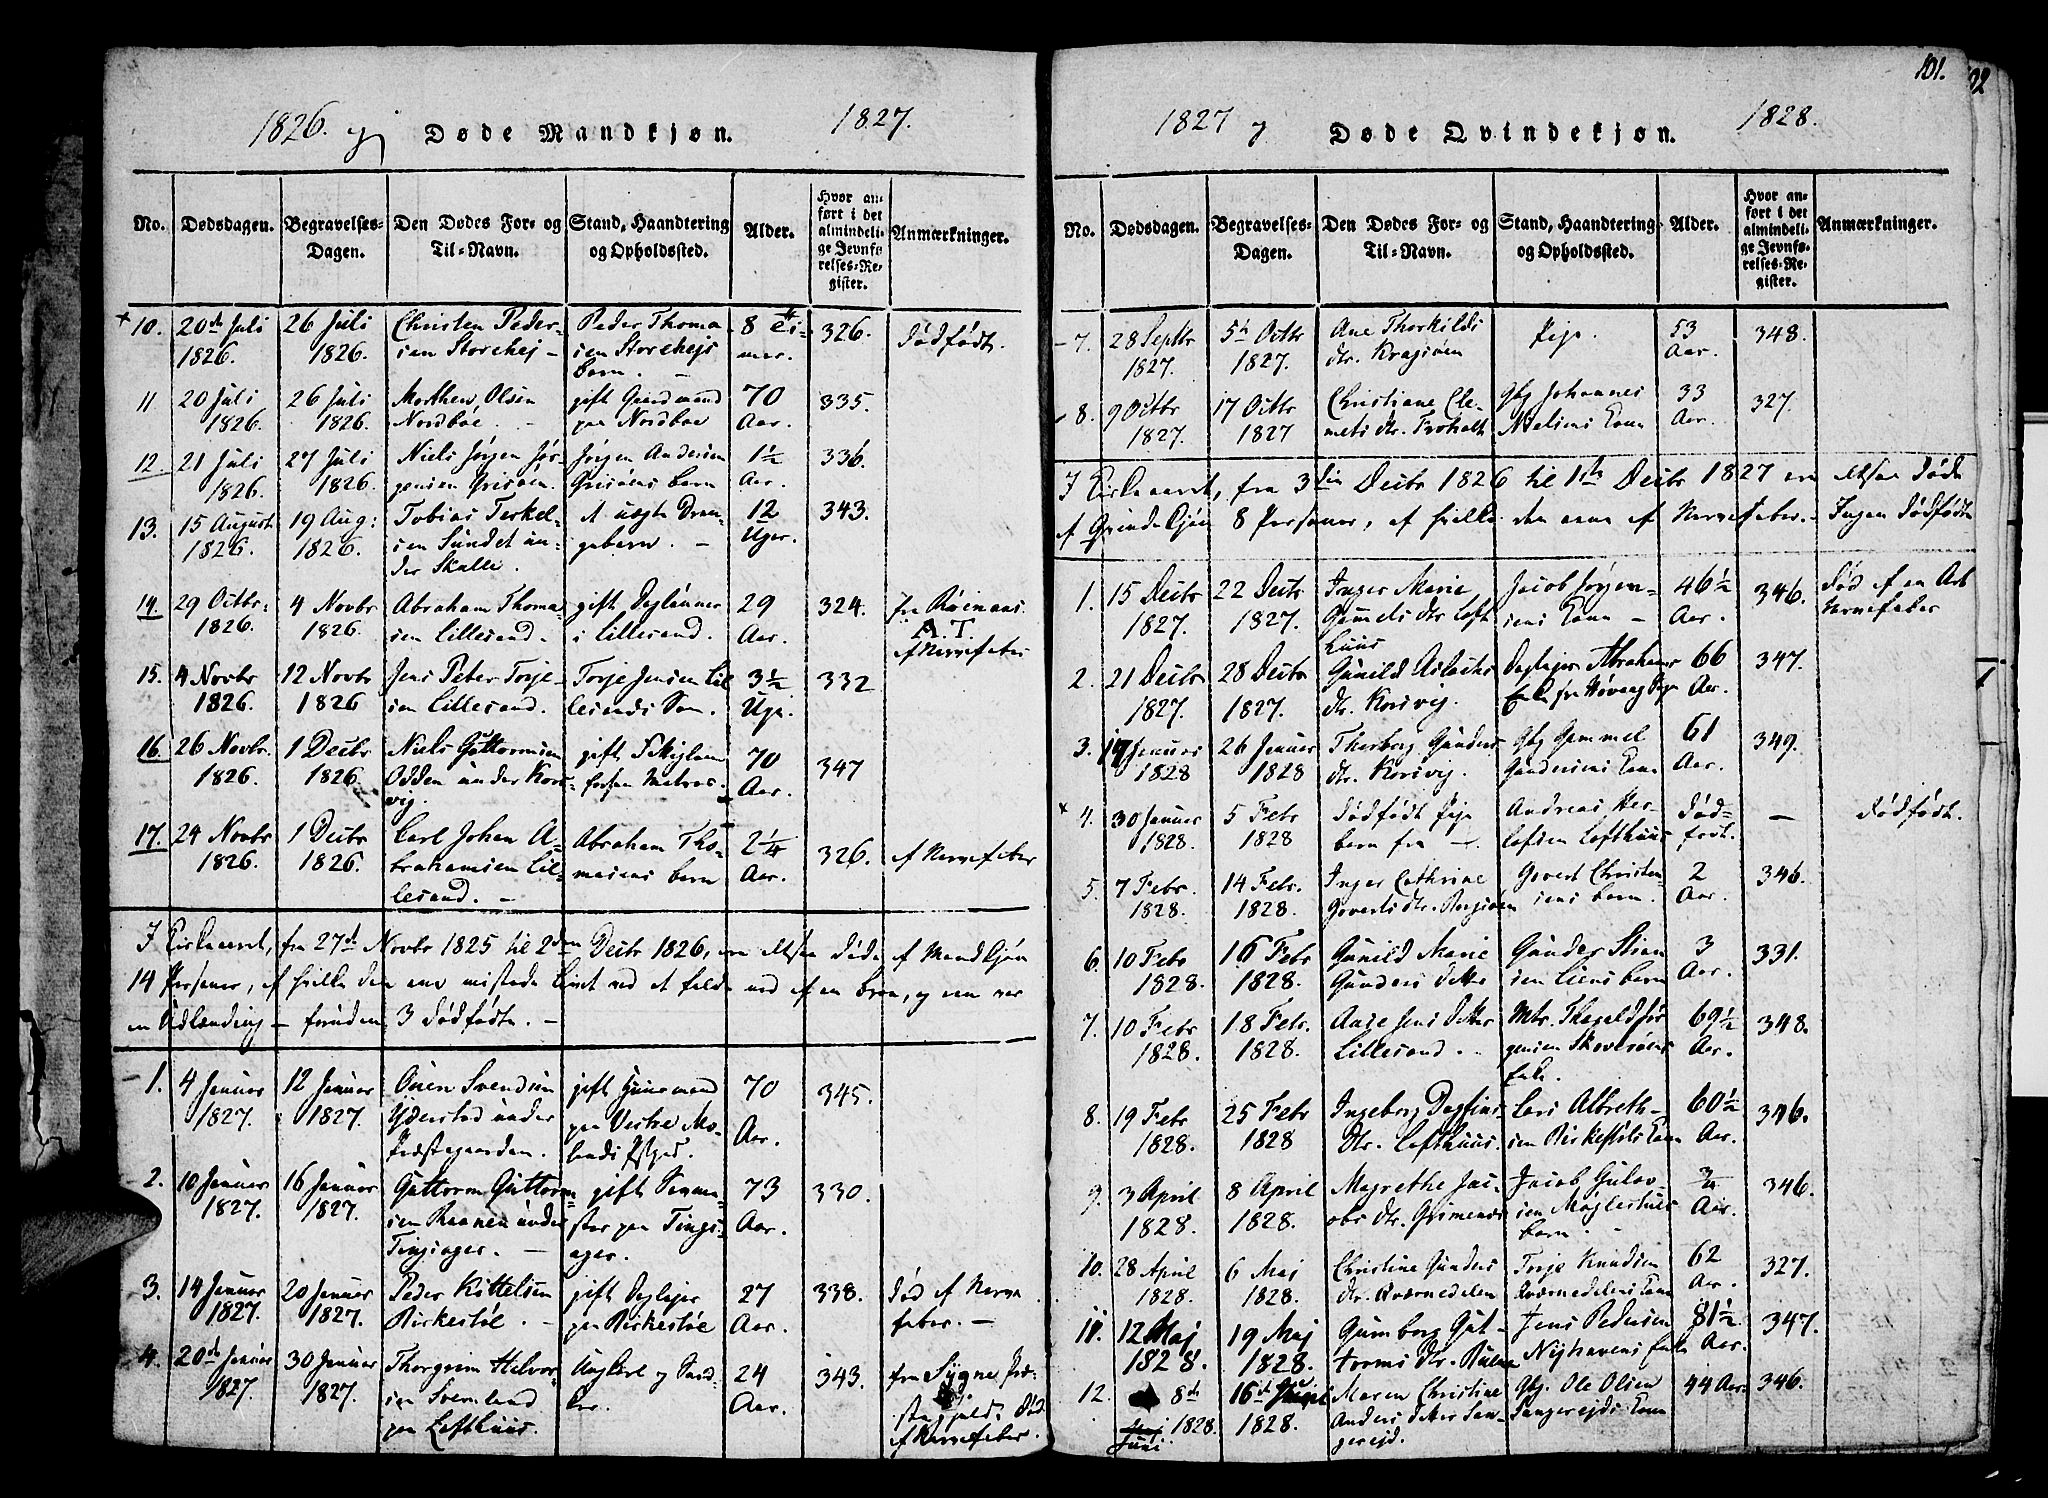 101.
102
1826. og Døde Mandkjøn. 1827.
No. Dødsdagen. Begravelses-Dagen. Den Dødes For- og Til-Navn. Stand, Haandtering og Opholdssted. Alder. Hvor anført i det almindelige Jevnførelses-Register. Anmærkninger.
10. 20de Juli 1826. 26 Juli 1826. Christen Pedersen Storehej - Peder Thomasen Storehejs barn. 8 Timer. 326. dødfødt.
11 20 Juli 1826. 26 Juli 1826. Morthen Olsen Nordbøe. gift Gaardmand paa Nordbøe 70 Aar. 335.
12 21 Juli 1826. 27 Juli 1826. Niels Jørgen Jørgensen Grisøen. Jørgen Andersen Grisøens barn 1½ Aar. 336.
13. 15 August 1826. 19 Aug: 1826. Tobias Terkelsen Sundet under Skalle. et uægte Drengebarn. 12 Uger. 343.
14 29 Octbr. 1826. 4 Novbr 1826. Abraham Thomasen Lillesand. gift Daglønner i Lillesand. 29 Aar. 324. A. T. af Nervefeber
15. 4 Novbr 1826. 12 Novbr 1826 Jens Peter Torjesen Lillesand. Torje Jensen Lillesands Søn. 3½ Uge. 332
16. 26 Novbr. 1826. 1 Decbr 1826. Niels Guttormsen Odden under Korsvig. gift Matros. 70 Aar. 347
17. 24 Novbr 1826. 1 Decbr 1826. Carl Johan Abrahamsen Lillesand. - Abraham Thomasens barn 2¼ Aar. 326. af Nervefeber
I Kirkeaaret, fra 27de Novbr 1825 til 2den Decbr 1826, er altsaa døde af Mandkjøn
14 Personer, af hvilke den ene mistede Livet ved et fald ned af en bræe, og een var
en Udlænding - foruden 3 dødfødte. -
1. 4 Januar 1827. 12 Januar 1827. Ouen Svendsen Yderstød under Præstegaarden. gift Huusmand paa Vestre Molands Pstgrd. 70 Aar. 345.
2. 10 Januar 1827. 16 Januar 1827. Guttorm Guttormsen Raanen under Tingsager. - gift paa Tingsager. 73 Aar. 330.
3. 14 Januar 1827. 20 Januar 1827. Peder Kittelsen Birkestøl. - gift Dagleier paa Birkestøl 27 Aar. 338. død af Nervefeber. -
4. 20de Januar 1827. 30 Januar 1827. Thorgrim Halvorsen Svemland paa Lofthuus. Ungkarl og Snedker. 24 Aar. 343. fra Præstegjeld: død af Nervefeber.
1827 og Døde Qvindekjøn. 1828.
No. Dødsdagen. Begravelses-Dagen. Den Dødes For- og Til-Navn. Stand, Haandtering og Opholdssted. Alder. Hvor anført i det almindelige Jevnførelses-Register. Anmærkninger.
7. 28 Septbr 1827. 5te Octbr 1827. Ane Thorkilds dtr. Kragsøen Pige. 53 Aar. 348.
8. 9 Octbr 1827. 17 Octbr 1827 Christiane Clemets dtr. Froholt Gbg Johannes Nielsens Kone 33 Aar. 327.
I Kirkeaaret, fra 3die Decbr 1826 til 1ste Decbr 1827 er altsaa døde
af Qvindekjøn 8 Personer, af hvilke den eene af Nervefeber. - Ingen dødfødte
1. 15 Decbr 1827. 22 Decbr 1827. Inger Marie Gamels dtr Lofthuus Jacob Jørgensens Kone - 46½ Aar. 346. død af en Art Nervefeber
2. 21 Decbr 1827. 28 Decbr 1827. Gunild Aslachs dtr. Korsvig. Dagleier Abrahams 66 Aar. 347.
3. 19 Januar 1828 26 Januar 1828 Thorborg Gunders dtr. Korsvig. Gbg Gammel Gundersens Kone 61 Aar. 349.
4. 30 Januar 1828. 5 Febr 1828 dødfødt Pigebarn fra - Andreas Herlofsen Lofthuus dødfødt. - dødfødt.
5. 7 Febr. 1828. 14 Febr. 1828. Inger Cathrine Goverts dtr. Govert Christensens barn. 2 Aar. 346.
6. 10 Febr 1828. 16 Febr 1828. Gunild Marie Gunders datter Gunder Stiansen Liens barn 3 Aar. 331.
7. 10 Febr 1828. 18 Febr. 1828. Aase Jens datter Lillesand. Mtr. Jørgensen Skoverøens Enke. 69½ Aar. 348.
8. 19 Febr 1828. 25 Febr 1828 Ingeborg Dagfins dtr. Lofthuus. Lars Albrethsen Kone 60½ Aar. 346.
9. 3 April 1828. 8 April 1828. Magrethe Jacobs dtr. Grimenæs Jacob Gulovsen Møglestues barn. ¾ Aar. 346.
10. 28 April 1828. 6 Maj 1828. Christine Gunders dtr. Kværnedalen Torje Knudsen Kværnedalens Kone 62 Aar. 327.
11. 12 Maj 1828. 19 Maj 1828. Gumborg Guttorms dtr. Jens Pedersen Nyhavens Enke 81½ Aar. 347.
12. 8de Juni 1828. 16de Juni 1828. Maren Christine Anders datter Sangereid. Gbg. Ole Olsen Sangereids Kone 44 Aar. 346.